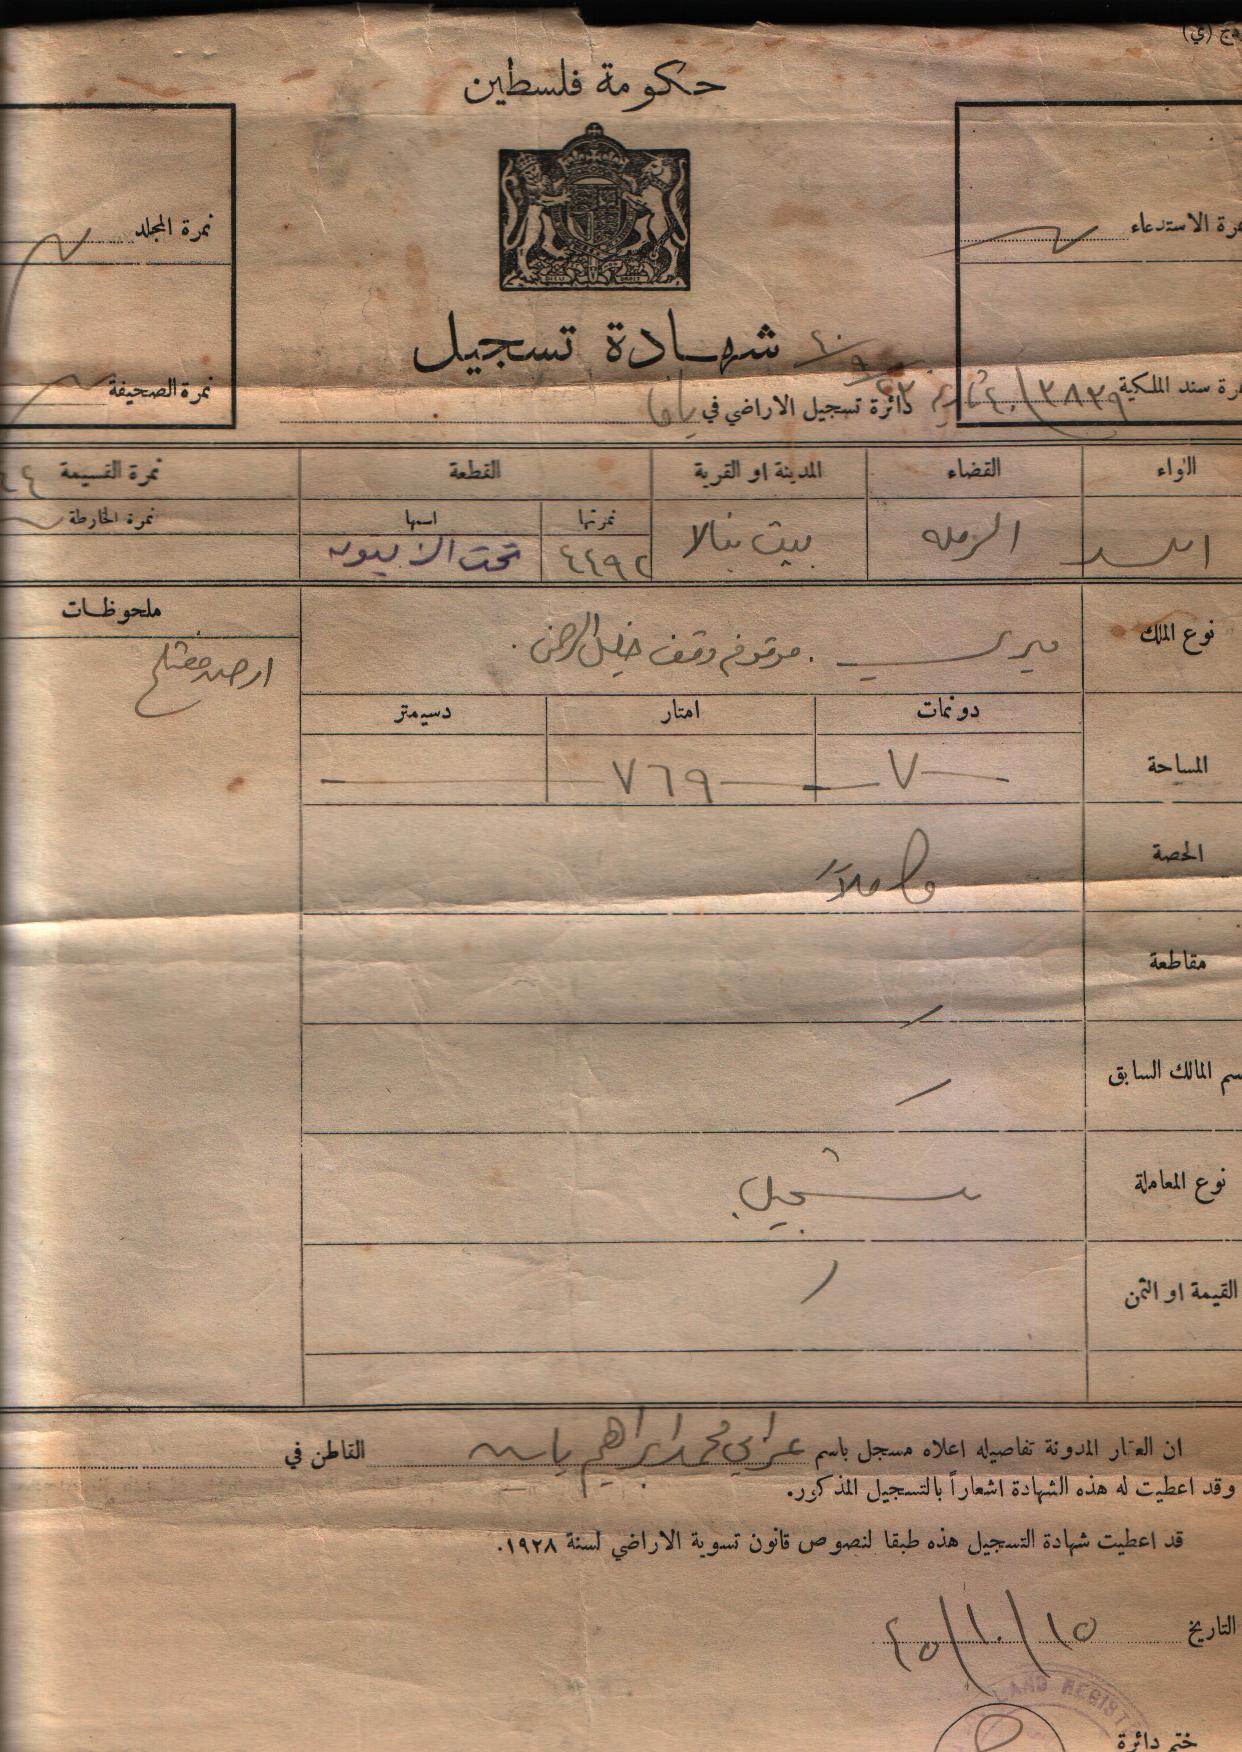 حكومة فلسطين
نمرة المجلد
نمرة الاستدعاء
شهادة تسجيل
نمرة الصحيفة
نمرة سند الملكية ٣٨٣٩
دائرة تسجيل الاراضي في يافا
اللواء القضاء المدينة او القرية القطعة نمرة القسيمة
نمرتها اسمها نمرة الخارطة
اللد الرمله بيت نبالا ٤٤٩٢
ملحوظات
نوع الملك ميري موقوفه وقف خليل الرحمن
دونمات امتار دسيمتر
المساحة ٧ ٧٦٩
الحصة كاملاً
مقاطعة
اسم المالك السابق
نوع المعاملة تسجيل
القيمة او الثمن
ان العقار المدونة تفاصيله اعلاه مسجل باسم محمد ابراهيم ياسين القاطن في
وقد اعطيت له هذه الشهادة اشعاراً بالتسجيل المذكور.
قد اعطيت شهادة التسجيل هذه طبقا لنصوص قانون تسوية الاراضي لسنة ١٩٢٨.
التاريخ ١٥/١٠/٤٥
LAND REGIST
ختم دائرة